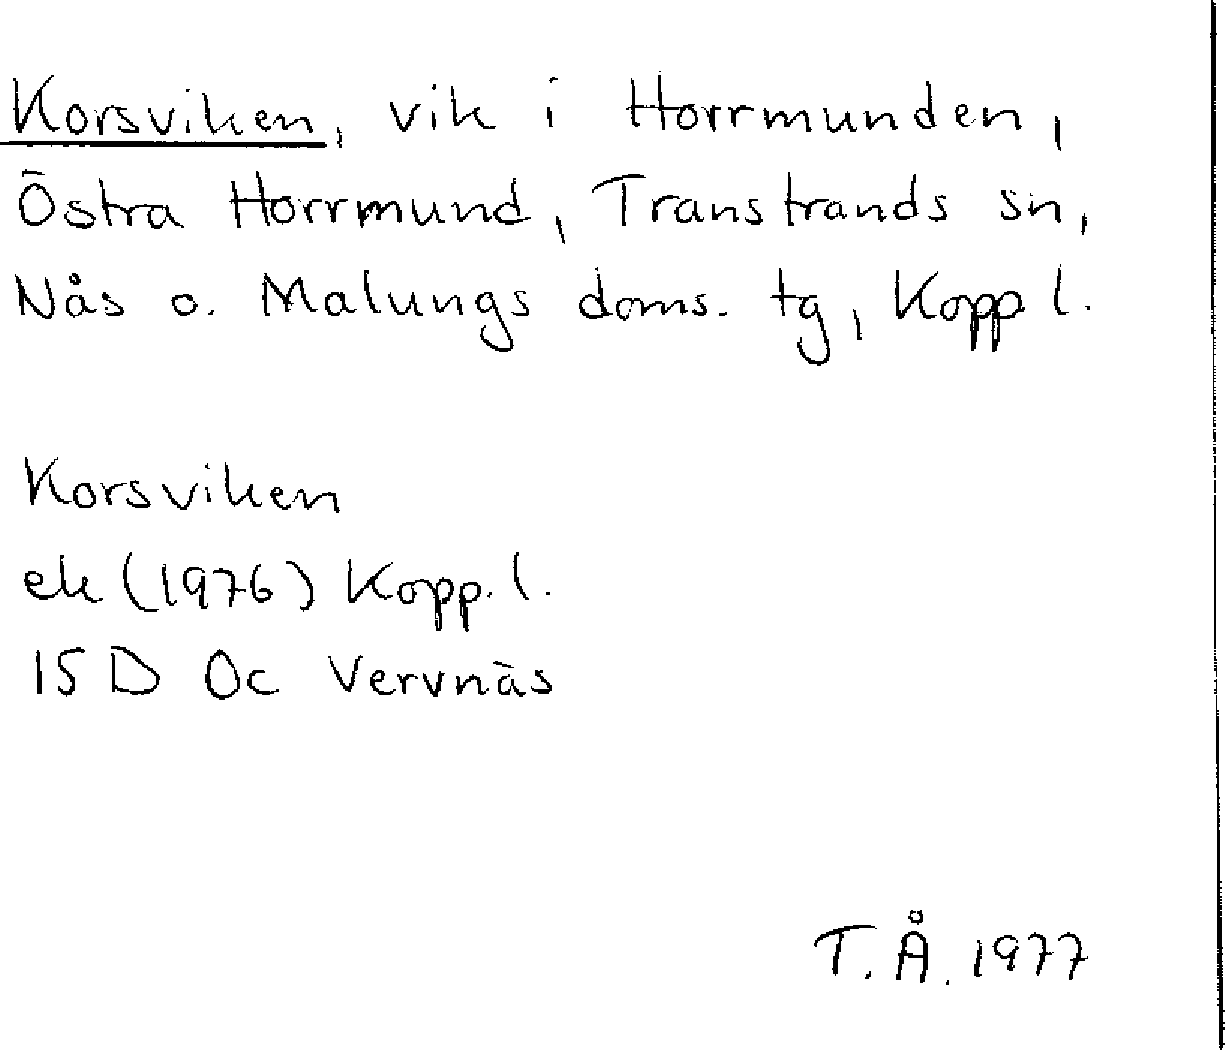 Korsviken, vik i Horrmunden,
Östra Horrmund, Transtrands sn,
Nås o. Malungs doms. tg, Kopp l.
Korsviken
ek (1976) Kopp. l.
15 D 0c Vervnäs
T. Å. 1977